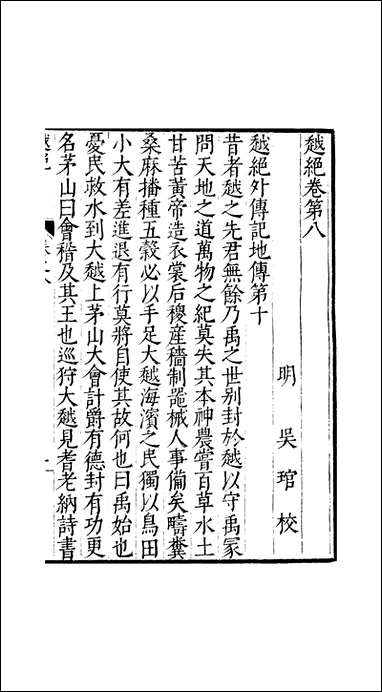 越絕卷第八
明 吳琯 校
越絕外傳記地傳第十
昔者越之先君無餘乃禹之世別封於越以守禹冢
問天地之道萬物之紀莫失其本神農嘗百草水土
甘苦黃帝造衣裳后稷產穡制噐械人事備矣疇糞
桑麻播種五穀必以手足大越海濱之民獨以鳥田
小大有差進退有行莫將自使其故何也曰禹始也
憂民救水到大越上茅山大會計爵有德封有功更
名茅山曰會稽及其王也巡狩大越見耆老納詩書